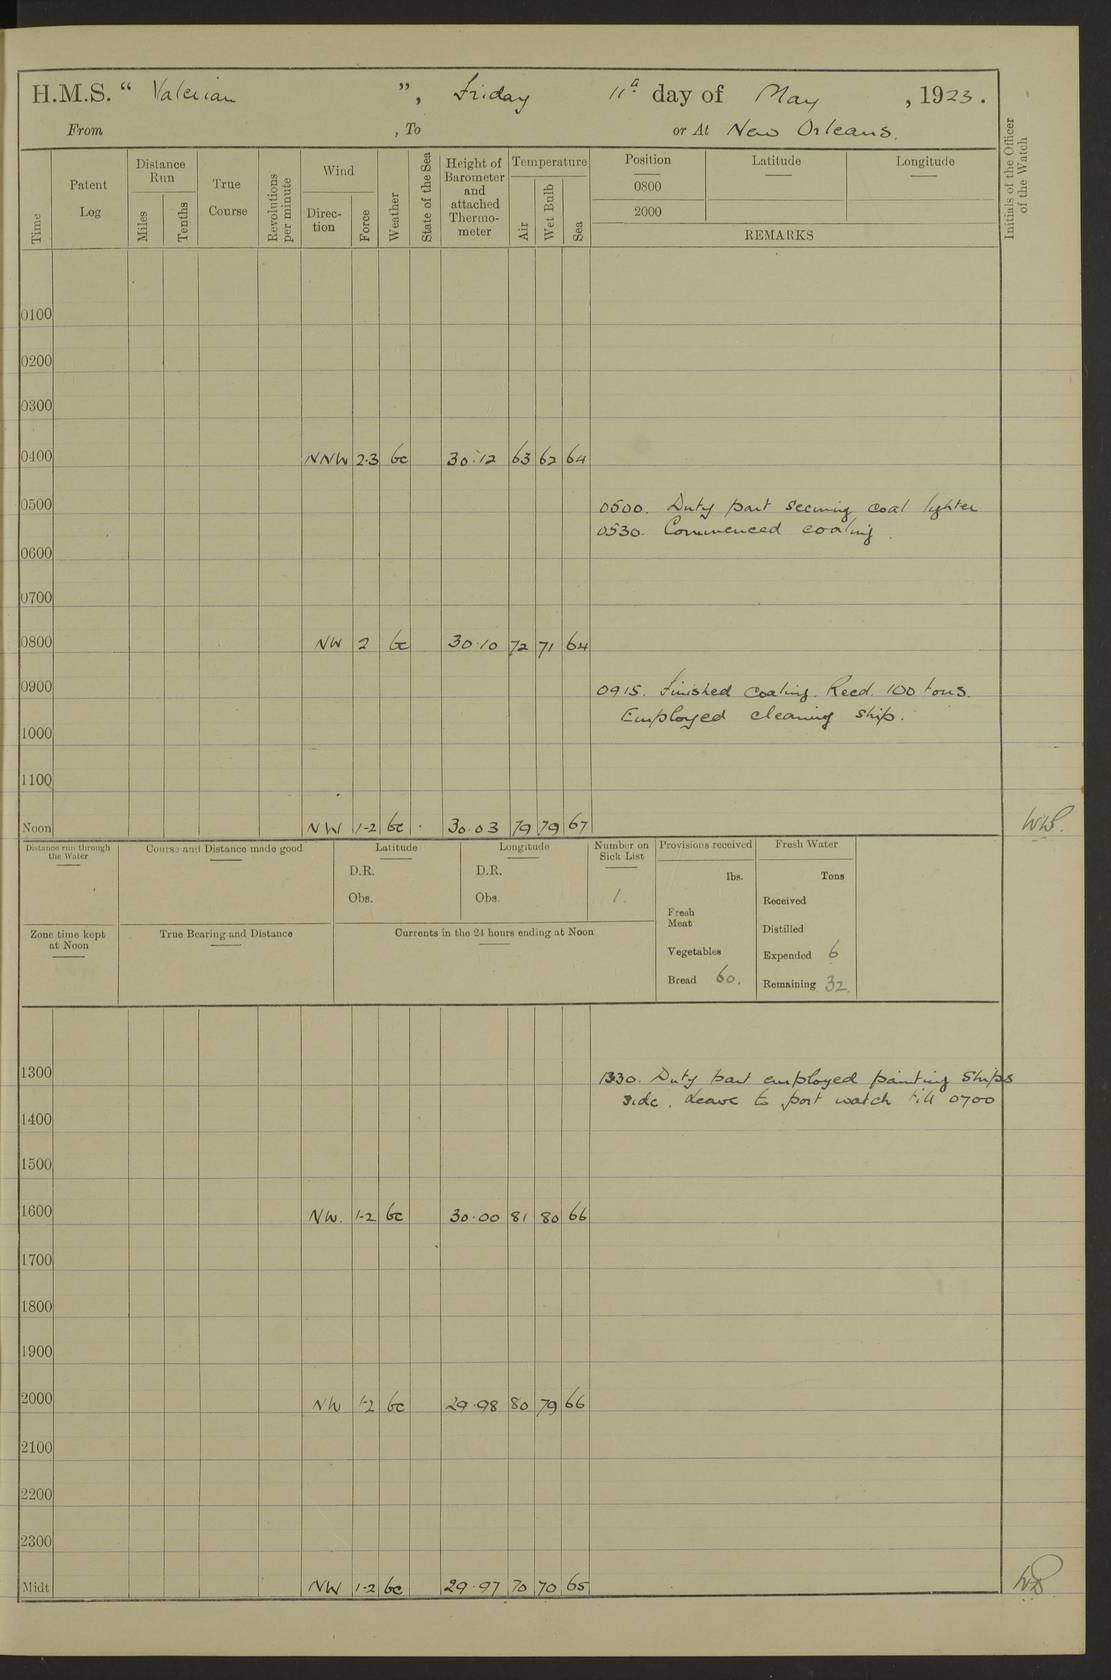 H.M.S. “ Valerian ”, Friday 11th day of May , 1923.
From , To or At New Orleans.
Time Patent Log Distance Run Miles Tenths True Course Revolutions per minute Wind Direc-tion Force Weather State of the Sea Height of Barometer and attached Thermo-meter Temperature Air Wet Bulb Sea Position Latitude Longitude Initials of the Officer of the Watch
0800
2000
REMARKS
0100
0200
0300
0400 NNW 2·3 bc 30·12 63 62 64
0500 0500. Duty part securing coal lighter
0530. Commenced coaling.
0600
0700
0800 NW 2 bc 30·10 72 71 64
0900 0915. Finished coaling. Recd. 100 tons.
Employed cleaning ship.
1000
1100
Noon NW 1-2 bc 30·03 79 79 67
Distance run through the Water Course and Distance made good Latitude Longitude Number on Sick List Provisions received Fresh Water
D.R. D.R. lbs. Tons
Obs. Obs. 1. Received
Fresh Meat
Distilled
Zone time kept at Noon True Bearing and Distance Currents in the 24 hours ending at Noon
Vegetables Expended 6
Bread 60. Remaining 32.
1300 1330. Duty part employed painting Ships
side. Leave to port watch till 0700
1400
1500
1600 NW. 1-2 bc 30·00 81 80 66
1700
1800
1900
2000 NW 1-2 bc 29·98 80 79 66
2100
2200
2300
Midt NW 1-2 bc 29·97 70 70 65